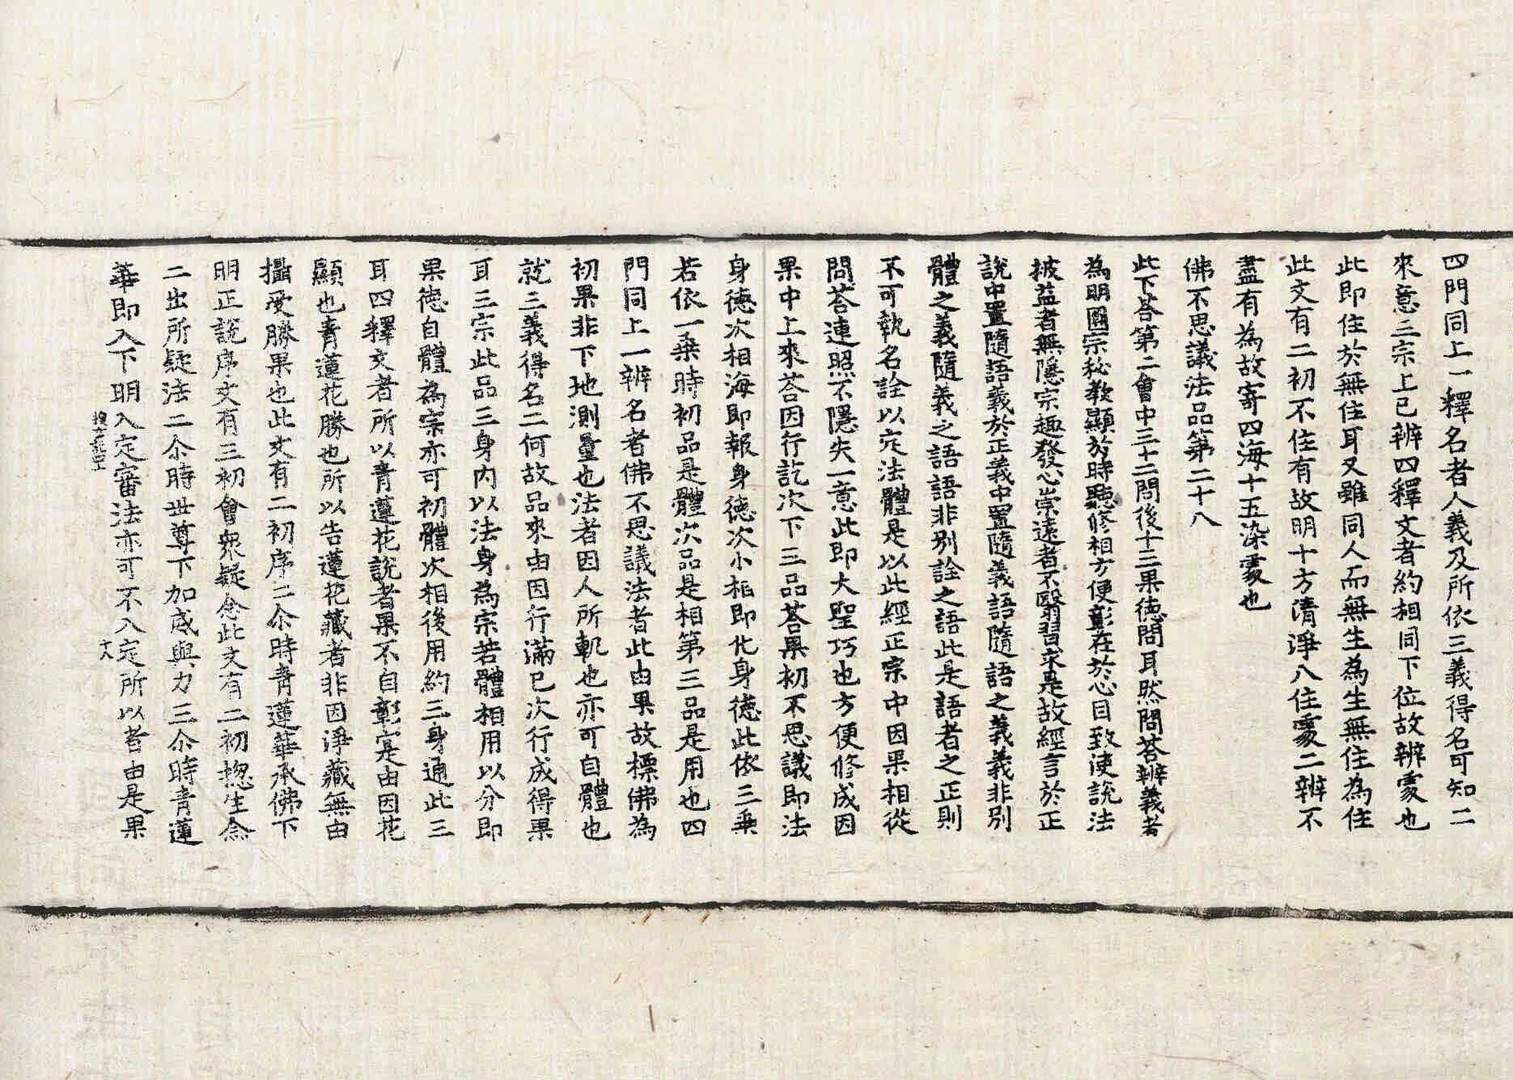 四門同上一釋名者人義及所依三義得名可知二
來意三宗上已辨四釋文者約相同下位故辨處也
此即住於無住耳又雖同人而無生為生無住為住
此文有二初不住有故明十方清淨八住處二辨不
盡有為故寄四海十五染處也
佛不思議法品第二十八
此下答第二會中三十二問後十三果德問耳然問答辨義者
為明圓宗秘教顯於時聽修相方便彰在於心目致使說法
披益者無隱宗趣發心崇遠者不翳習求是故經言於正
說中置隨語義於正義中置隨義語隨語之義義非別
體之義隨義之語語非別詮之語此是語者之正則
不可執名詮以定法體是以此經正宗中因果相從
問答連照不隱失一意此即大聖巧也方便修成因
果中上來荅因行訖次下三品荅果初不思議即法
身德次相海即報身德次小相即化身德此依三乘
若依一乘時初品是體次品是相第三品是用也四
門同上一辨名者佛不思議法者此由果故標佛為
初果非下地測量也法者因人所軌也亦可自體也
就三義得名二何故品來由因行滿已次行成得果
耳三宗此品三身內以法身為宗若體相用以分即
果德自體為宗亦可初體次相後用約三身通此三
耳四釋文者所以青蓮花說者果不自彰寔由因花
顯也青蓮花勝也所以告蓮花藏者非因淨藏無由
攝受勝果也此文有二初序二尒時青蓮華承佛下
明正說序文有三初會衆疑念此文有二初惣生念
二出所疑法二尒時世尊下加威與力三尒時青蓮
華即入下明入定審法亦可不入定所以者由是果
十八